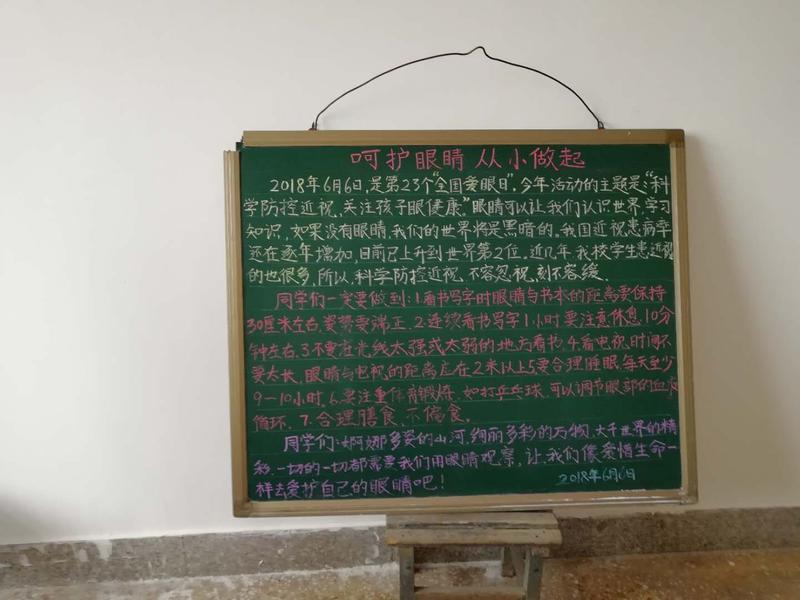 呵护眼睛 从小做起
2018年6月6日,是第23个“全国爱眼日”,今年活动的主题是:“科
学防控近视,关注孩子眼健康”。眼睛可以让我们认识世界,学习
知识,如果没有眼睛,我们的世界将是黑暗的。我国近视患病学
还在逐年增加,目前已上升到世界第2位,近几年,我校学生患近视
的也很多,所以,科学防控近视,不容忽视,刻不容缓。
同学们一定要做到:1.看书写字时眼睛与书本的距离要保持
30厘米左右,姿势要端正.2.连续看书写字1小时要注意休息10分
钟左右.3.不要在光线太强或太弱的地方看书.4.看电视时间不
要太长,眼睛与电视的距离应在2米以上5.要合理睡眠,每天至少
9—10小时.6.要注重体育锻炼,如打乒乓球,可以调节眼部的血液
循环.7.合理膳食,不偏食.
同学们:婀娜多姿的山河,绚丽多彩的万物,大千世界的精
彩,一切的一切都需要我们用眼睛观察,让我们像爱惜生命一
样去爱护自己的眼睛吧!
2018年6月6日